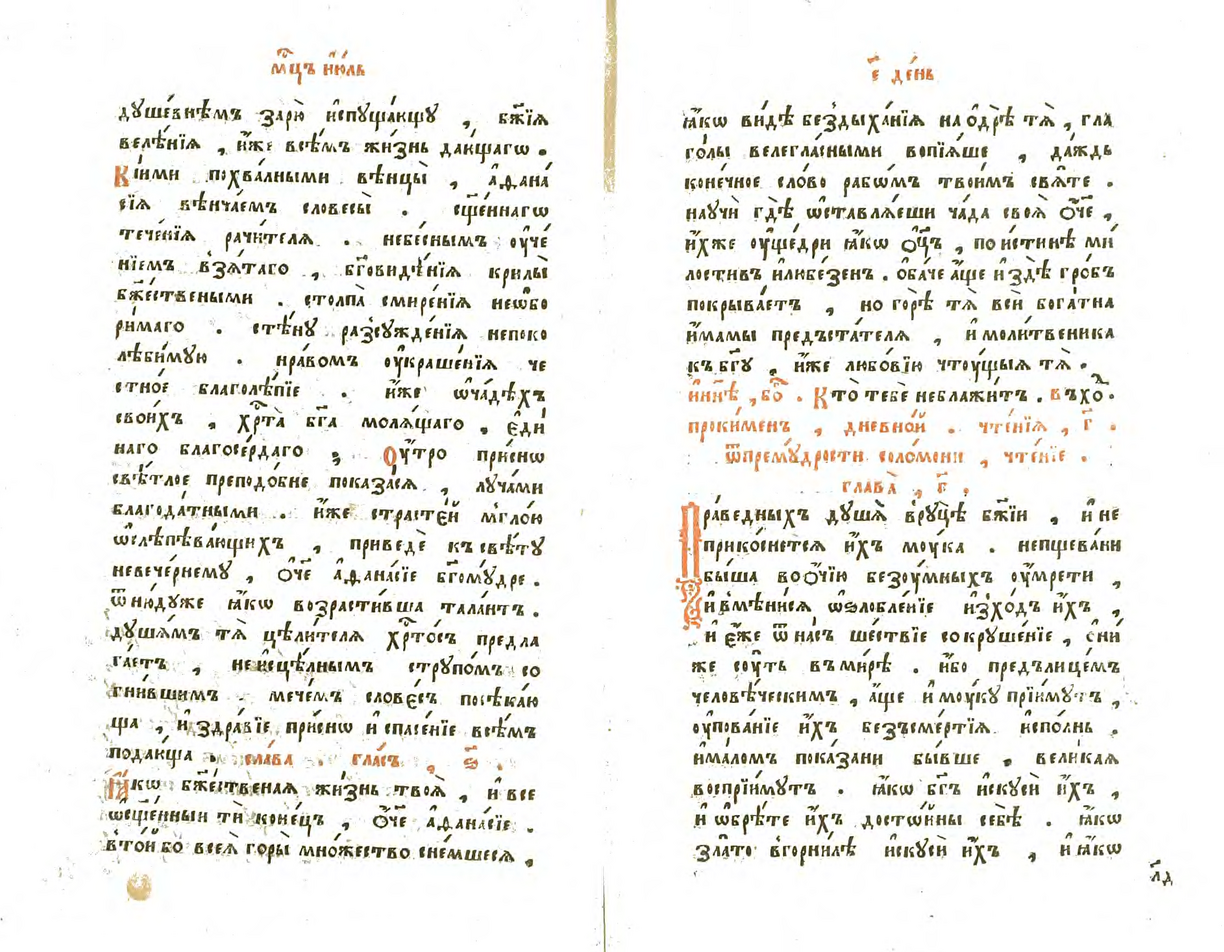 мⷭ҇цъ ію́ль
дꙋше́внѣмъ зарю̀ и҆спꙋща́ющꙋ , бж҃їѧ
велѣ́нїѧ , и҆́же всѣ́мъ жи́знь даю́щагѡ .
Кі́ими похва́лными вѣнцы̀ , а҆ѳана́
сїѧ вѣнча́емъ словесы̀ . сщ҃е́ннагѡ
тече́нїѧ рачи́телѧ . небе́снымъ ѹ҆че́
нїемъ взѧ́таго , бг҃ови́дѣнїѧ крилы̀
бж҃е́ствеными . столпа̀ смире́нїѧ неѡбо
ри́маго . стѣ́нꙋ разсꙋжде́нїѧ непоко
лѣби́мꙋю . нра́вомъ ѹ҆краше́нїѧ че
стно́е благолѣ́пїе . и҆́же ѡ҆ча́дѣхъ
свои́хъ , хрⷭ҇та̀ бг҃а молѧ́щаго , є҆ди́
наго благосе́рдаго ; Оу҆́тро при́снѡ
свѣ́тлое преподо́бне показа́сѧ , лꙋча́ми
благода́тными . и҆́же страсте́й мгло́ю
ѡ҆слѣпѣва́ющихъ , приведѐ къ свѣ́тꙋ
невече́рнемꙋ , ѻ҆́ч҃е а҆ѳана́сїе бг҃омꙋ́дре .
ѿню́дꙋже ꙗ҆́кѡ возрасти́вша тала́нтъ .
дꙋша́мъ тѧ̀ цѣли́телѧ хрⷭ҇то́съ предла
га́етъ , неисцѣ́лнымъ стрꙋпо́мъ со
гни́вшимъ . мече́мъ слове́съ посѣка́ю
ща , и҆ здра́вїе при́снѡ и҆ спасе́нїе всѣ́мъ
подаю́ща . сла́ва . гла́съ , ѕ҃ .
Ꙗ҆́кѡ бж҃е́ственаѧ жи́знь твоѧ̀ , и҆ все
ѡ҆сщ҃е́нныи тѝ коне́цъ , ѻ҆́ч҃е а҆ѳана́сїе .
в то́й бо всеѧ̀ горы̀ мно́жество сне́мшесѧ ,
е҃ де́нь
ꙗ҆́кѡ ви́дѣ бездыха́нїѧ на ѻ҆дрѣ̀ тѧ̀ , гла
го́лы велегла́сными вопїѧ́ше , да́ждь
коне́чное сло́во рабѡ́мъ твои́мъ свѧ́те .
наꙋчѝ гдѣ̀ ѡ҆ставлѧ́еши ча́да своѧ̀ ѻ҆́ч҃е ,
и҆́хже ѹ҆ще́дри ꙗ҆́кѡ ѻ҆ц҃ъ , по и́стинѣ ми́
лостивъ и҆ любе́зенъ . ѻ҆ба́че а҆́ще и҆ здѣ̀ гро́бъ
покрыва́етъ , но горѣ̀ тѧ̀ всѝ бога́тна
и҆́мамы предъста́телѧ , и҆ моли́твеника
къ бг҃ꙋ , и҆́же любо́вїю чтоу́щыѧ тѧ̀ .
и҆ ны́нѣ , бо҃ . Кто̀ тебѐ неблажи́тъ . въхо́ⷣ .
проки́менъ , дневно́й . чте́нїѧ , г҃ .
ѿ премꙋ́дрости соломо́ни , чте́нїе .
глава̀ , г҃ ,
Пра́ведныхъ дꙋшѧ̀ в рꙋцѣ̀ бж҃їи , и҆ не
прикоснетсѧ и҆́хъ моу́ка . непщева́ни
бы́ша во ѻ҆чі́ю безоу́мныхъ ѹ҆мре́ти ,
и҆ вмѣни́сѧ ѡ҆ѕлобле́нїе и҆схо́дъ и҆́хъ ,
и҆ є҆́же ѿ на́съ ше́ствїе сокрꙋше́нїе , ѻ҆ни́
же соу́ть въ ми́рѣ . и҆́бо предъ лице́мъ
человѣ́ческимъ , а҆́ще и҆ моу́кꙋ прїи́мꙋтъ ,
ѹ҆пова́нїе и҆́хъ безъсме́ртїѧ и҆спо́лнь .
и҆ ма́ломъ пока́зани бы́вше , вели́каѧ
воспрїи́мꙋтъ . ꙗ҆́кѡ бг҃ъ и҆скꙋсѝ и҆́хъ ,
и҆ ѡ҆брѣ́те и҆́хъ досто́йны себѣ̀ . ꙗ҆́кѡ
зла́то в горни́лѣ и҆скꙋсѝ и҆́хъ , и҆ ꙗ҆́кѡ
л҃д